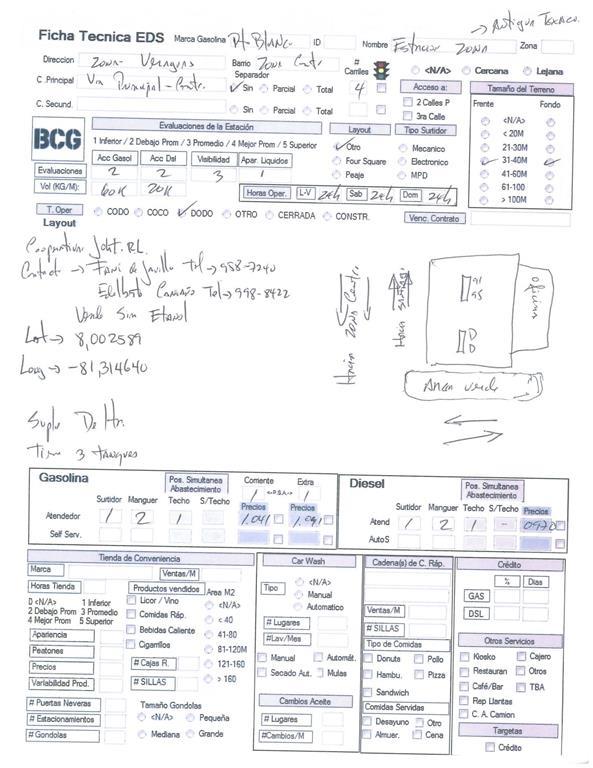 → Antigua Texaco
Ficha Tecnica EDS Marca Gasolina Pt-Blanco ID Nombre Estacion Zona Zona
Direccion Zona- Veraguas Barrio Zona Centr # Carriles <N/A> Cercana Lejana
C .Principal Via Principal-Centr. Separador Sin Parcial Total 4 Acceso a: Tamaño del Terreno
C. Secund. Sin Parcial Total 2 Calles P Frente Fondo
3ra Calle <N/A>
BCG Evaluaciones de la Estación Layout Tipo Surtidor < 20M
1 Inferior / 2 Debajo Prom / 3 Promedio / 4 Mejor Prom / 5 Superior Otro Mecanico 21-30M
Acc Gasol Acc Dsl Visibilidad Apar. Liquidos Four Square Electronico 31-40M
Evaluaciones 2 2 3 1 Peaje MPD 41-60M
Vol (KG/M): 60K 20K Horas Oper. L-V 24h Sab 24h Dom 24h 61-100
> 100M
T. Oper CODO COCO DODO OTRO CERRADA CONSTR. Venc. Contrato
Layout
Cooperativa R.L.
Contact → de Tel → 958-7240
Tel → 998-8422
Vende Sin Etanol
Lat → 8,002589
Long → -81,314640
Hacia Zona Centro
Hacia
91
95
D
D
Oficina
Area verde
De
Tiene 3 tanques
Gasolina Pos. Simultanea Abastecimiento Corriente Extra
1 <-P.S.A.-> 1
Surtidor Manguer Techo S/Techo Precios Precios
Atendedor 1 2 1 1.041 1.091
Self Serv.
Diesel Pos. Simultanea Abastecimiento
Surtidor Manguer Techo S/Techo Precios
Atend 1 2 1 - 0970
AutoS
Tienda de Conveniencia
Marca Ventas/M
Horas Tienda Productos vendidos Area M2
0 <N/A> 1 Inferior Licor / Vino <N/A>
2 Debajo Prom 3 Promedio Comidas Ráp. < 40
4 Mejor Prom 5 Superior
Apariencia Bebidas Caliente 41-80
Peatones Cigarrilos 81-120M
Precios # Cajas R. 121-160
Variabilidad Prod. # SILLAS > 160
# Puertas Neveras Tamaño Gondolas
# Estacionamientos <N/A> Pequeña
# Gondolas Mediana Grande
Car Wash
Tipo <N/A>
Manual
Automatico
# Lugares
#Lav/Mes
Manual Automát.
Secado Aut. Mulas
Cambios Aceite
# Lugares
#Cambios/M
Cadena(s) de C. Ráp.
Ventas/M
# SILLAS
Tipo de Comidas
Donuts Pollo
Hambu. Pizza
Sandwich
Comidas Servidas
Desayuno Otro
Almuer. Cena
Crédito
% Dias
GAS
DSL
Otros Servicios
Kiosko Cajero
Restauran Otros
Café/Bar TBA
Rep Llantas
C. A. Camion
Targetas
Crédito